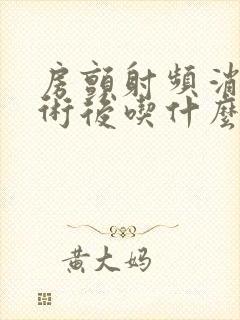 房顫射頻消
術後喫什麼
黄大妈